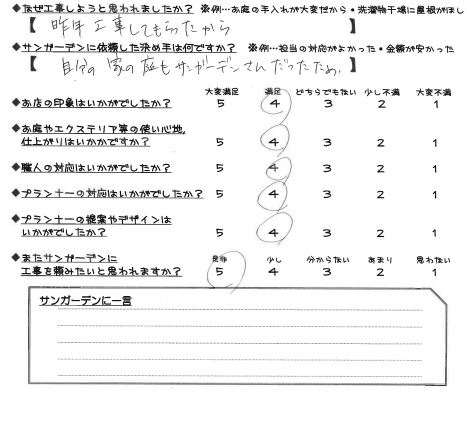 ◆なぜ工事しようと思われましたか? ※例…お庭の手入れが大変だから・洗濯物干場に屋根がほし
【 昨年工事してもらったから 】
◆サンガーデンに依頼した決め手は何ですか? ※例…担当の対応がよかった・金額が安かった
【 自分の家の庭もサンガーデンさんだったため。 】
大変満足 満足 どちらでもない 少し不満 大変不満
◆お店の印象はいかがでしたか? 5 4 3 2 1
◆お庭やエクステリア等の使い心地,
仕上がりはいかかですか? 5 4 3 2 1
◆職人の対応はいかがでしたか? 5 4 3 2 1
◆プランナーの対応はいかがでしたか? 5 4 3 2 1
◆プランナーの提案やデザインは
いかがでしたか? 5 4 3 2 1
◆またサンガーデンに 是非 少し 分からない あまり 思わない
工事を頼みたいと思われますか? 5 4 3 2 1
サンガーデンに一言